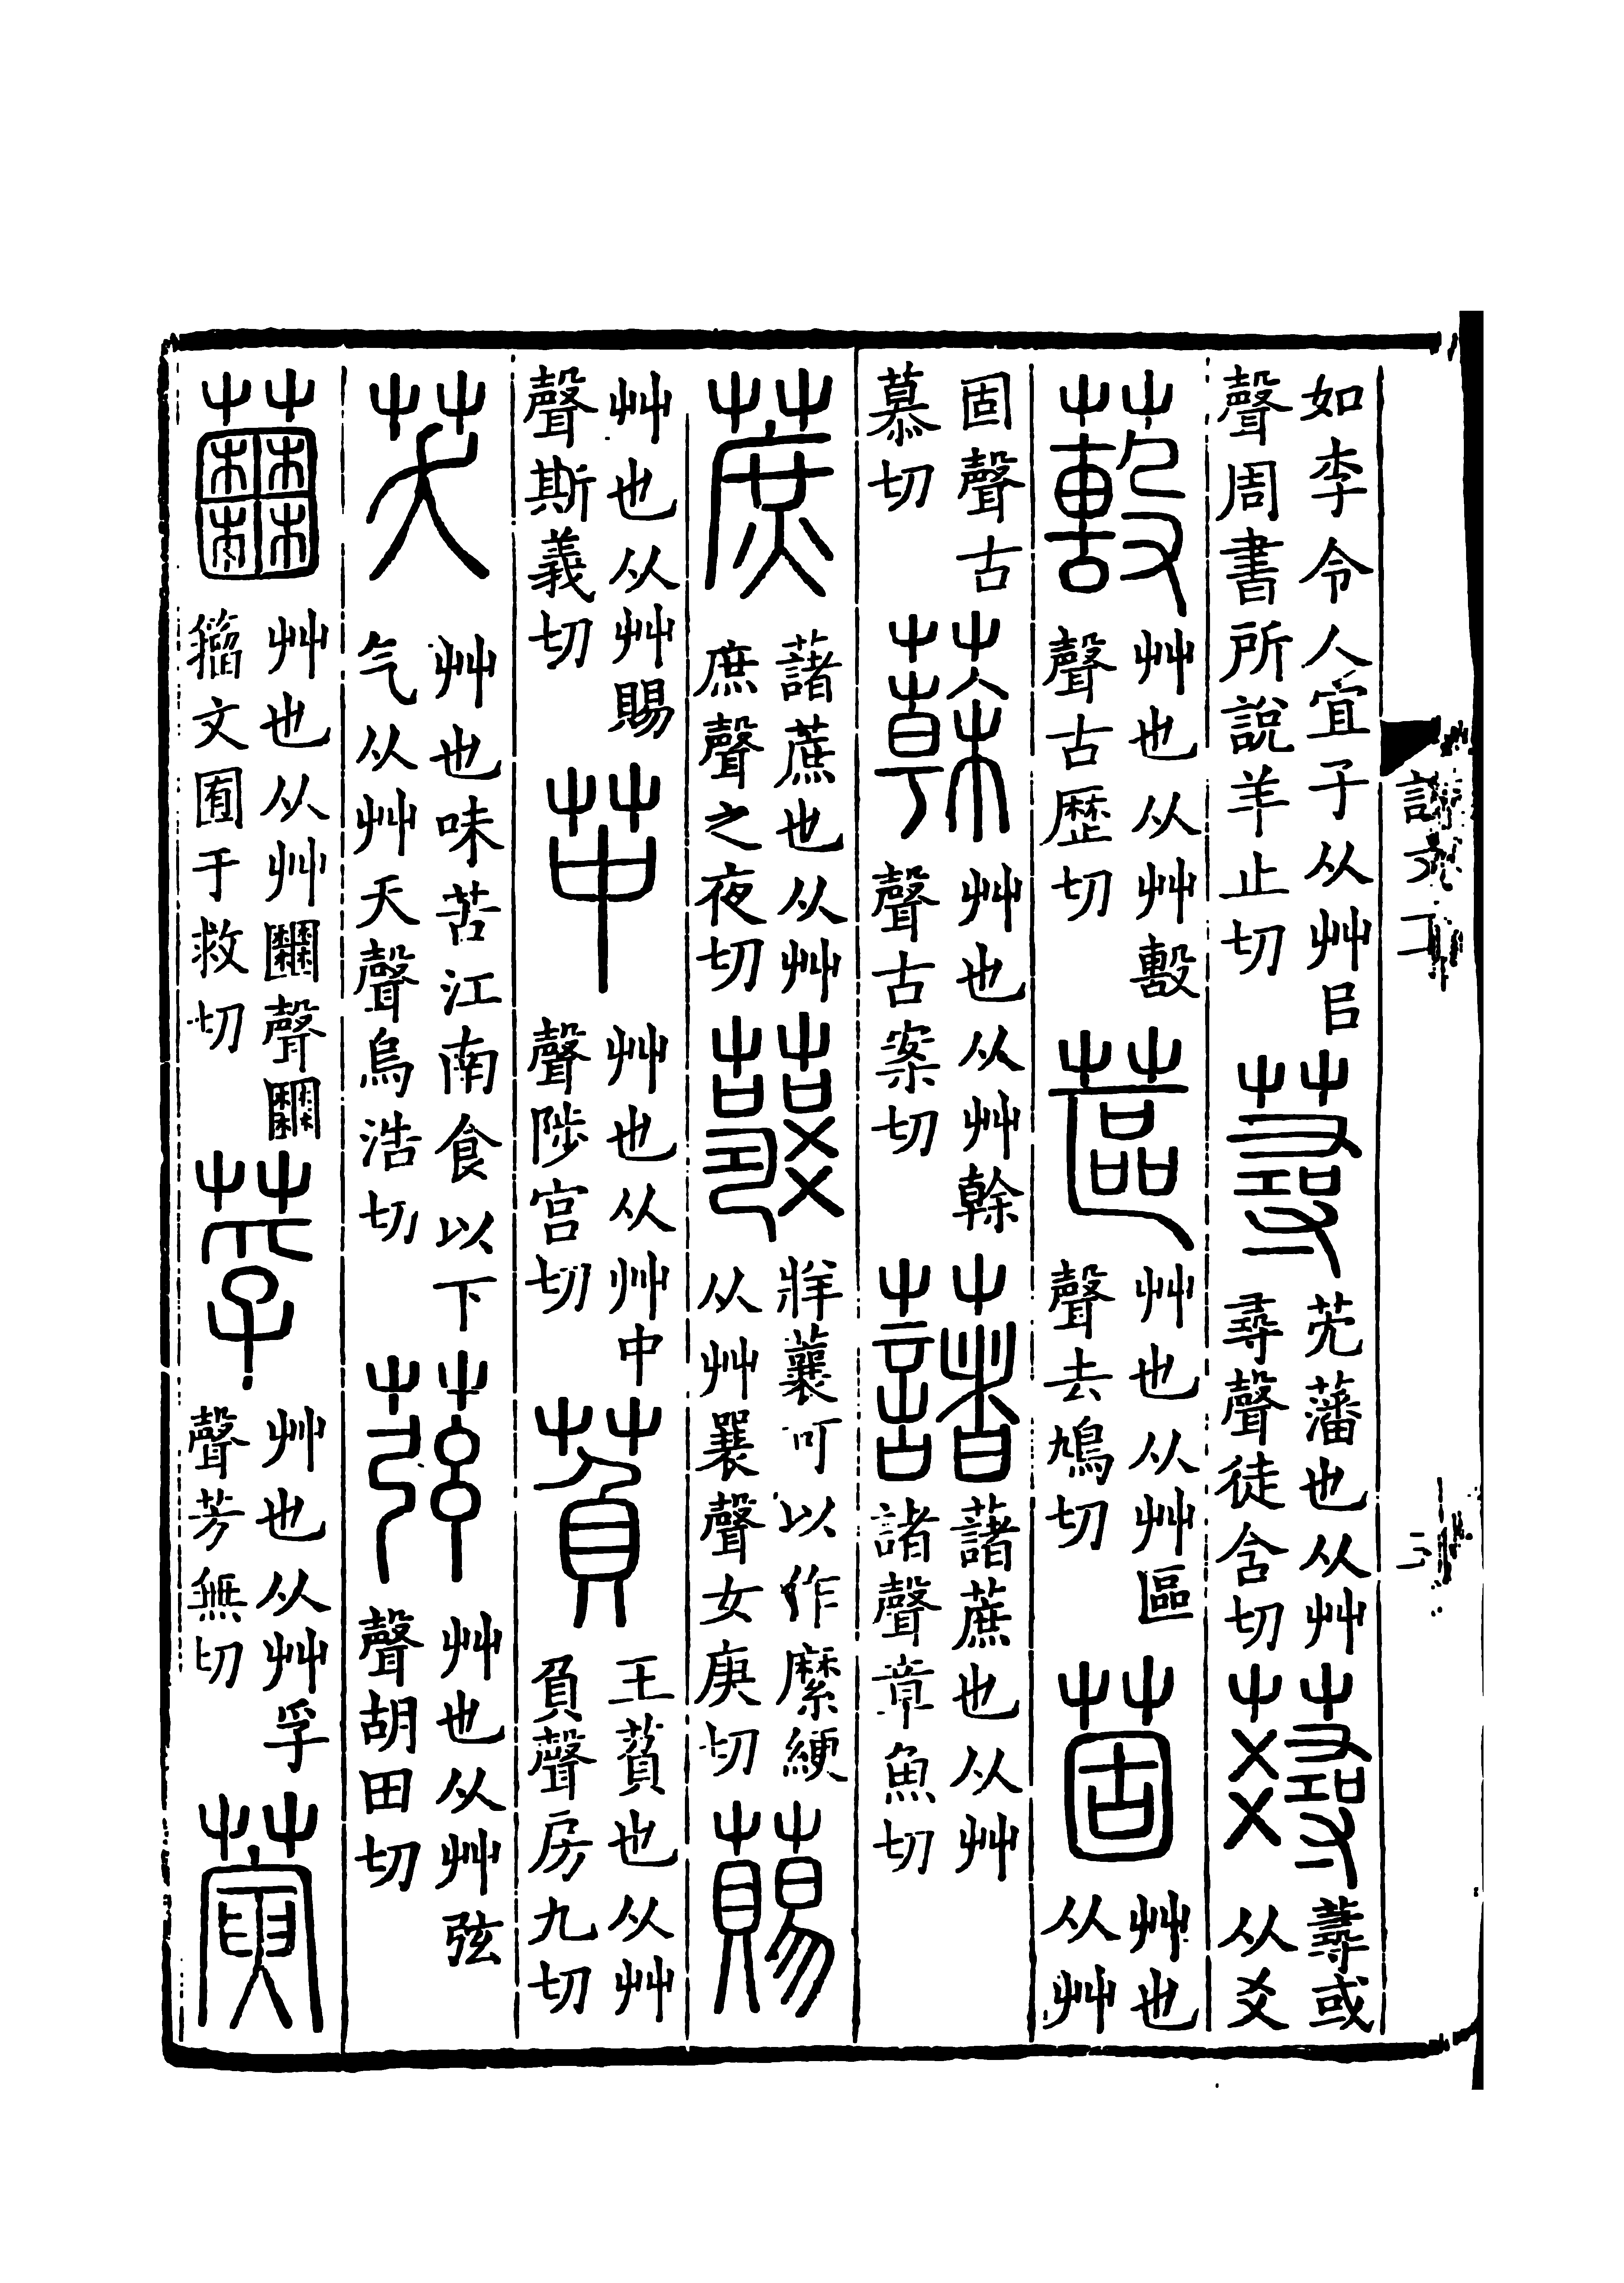 說文一下
三
如李令人宜子从艸㠯
聲周書所說羊止切
蕁
芫藩也从艸
尋聲徒含切
蕁或
从爻
艸也从艸毄
聲古歷切
蓲
艸也从艸區
聲去鳩切
艸也
从艸
固聲古
慕切
艸也从艸榦
聲古案切
藷
藷蔗也从艸
諸聲章魚切
蔗
藷蔗也从艸
庶聲之夜切
牂蘘可以作縻綆
从艸襄聲女庚切
艸也从艸賜
聲斯義切
艸也从艸中
聲陟宫切
萯
王萯也从艸
負聲房九切
芺
艸也味苦江南食以下
气从艸夭聲烏浩切
艸也从艸弦
聲胡田切
艸也从艸聲
籒文囿于救切
莩
艸也从艸孚
聲芳無切